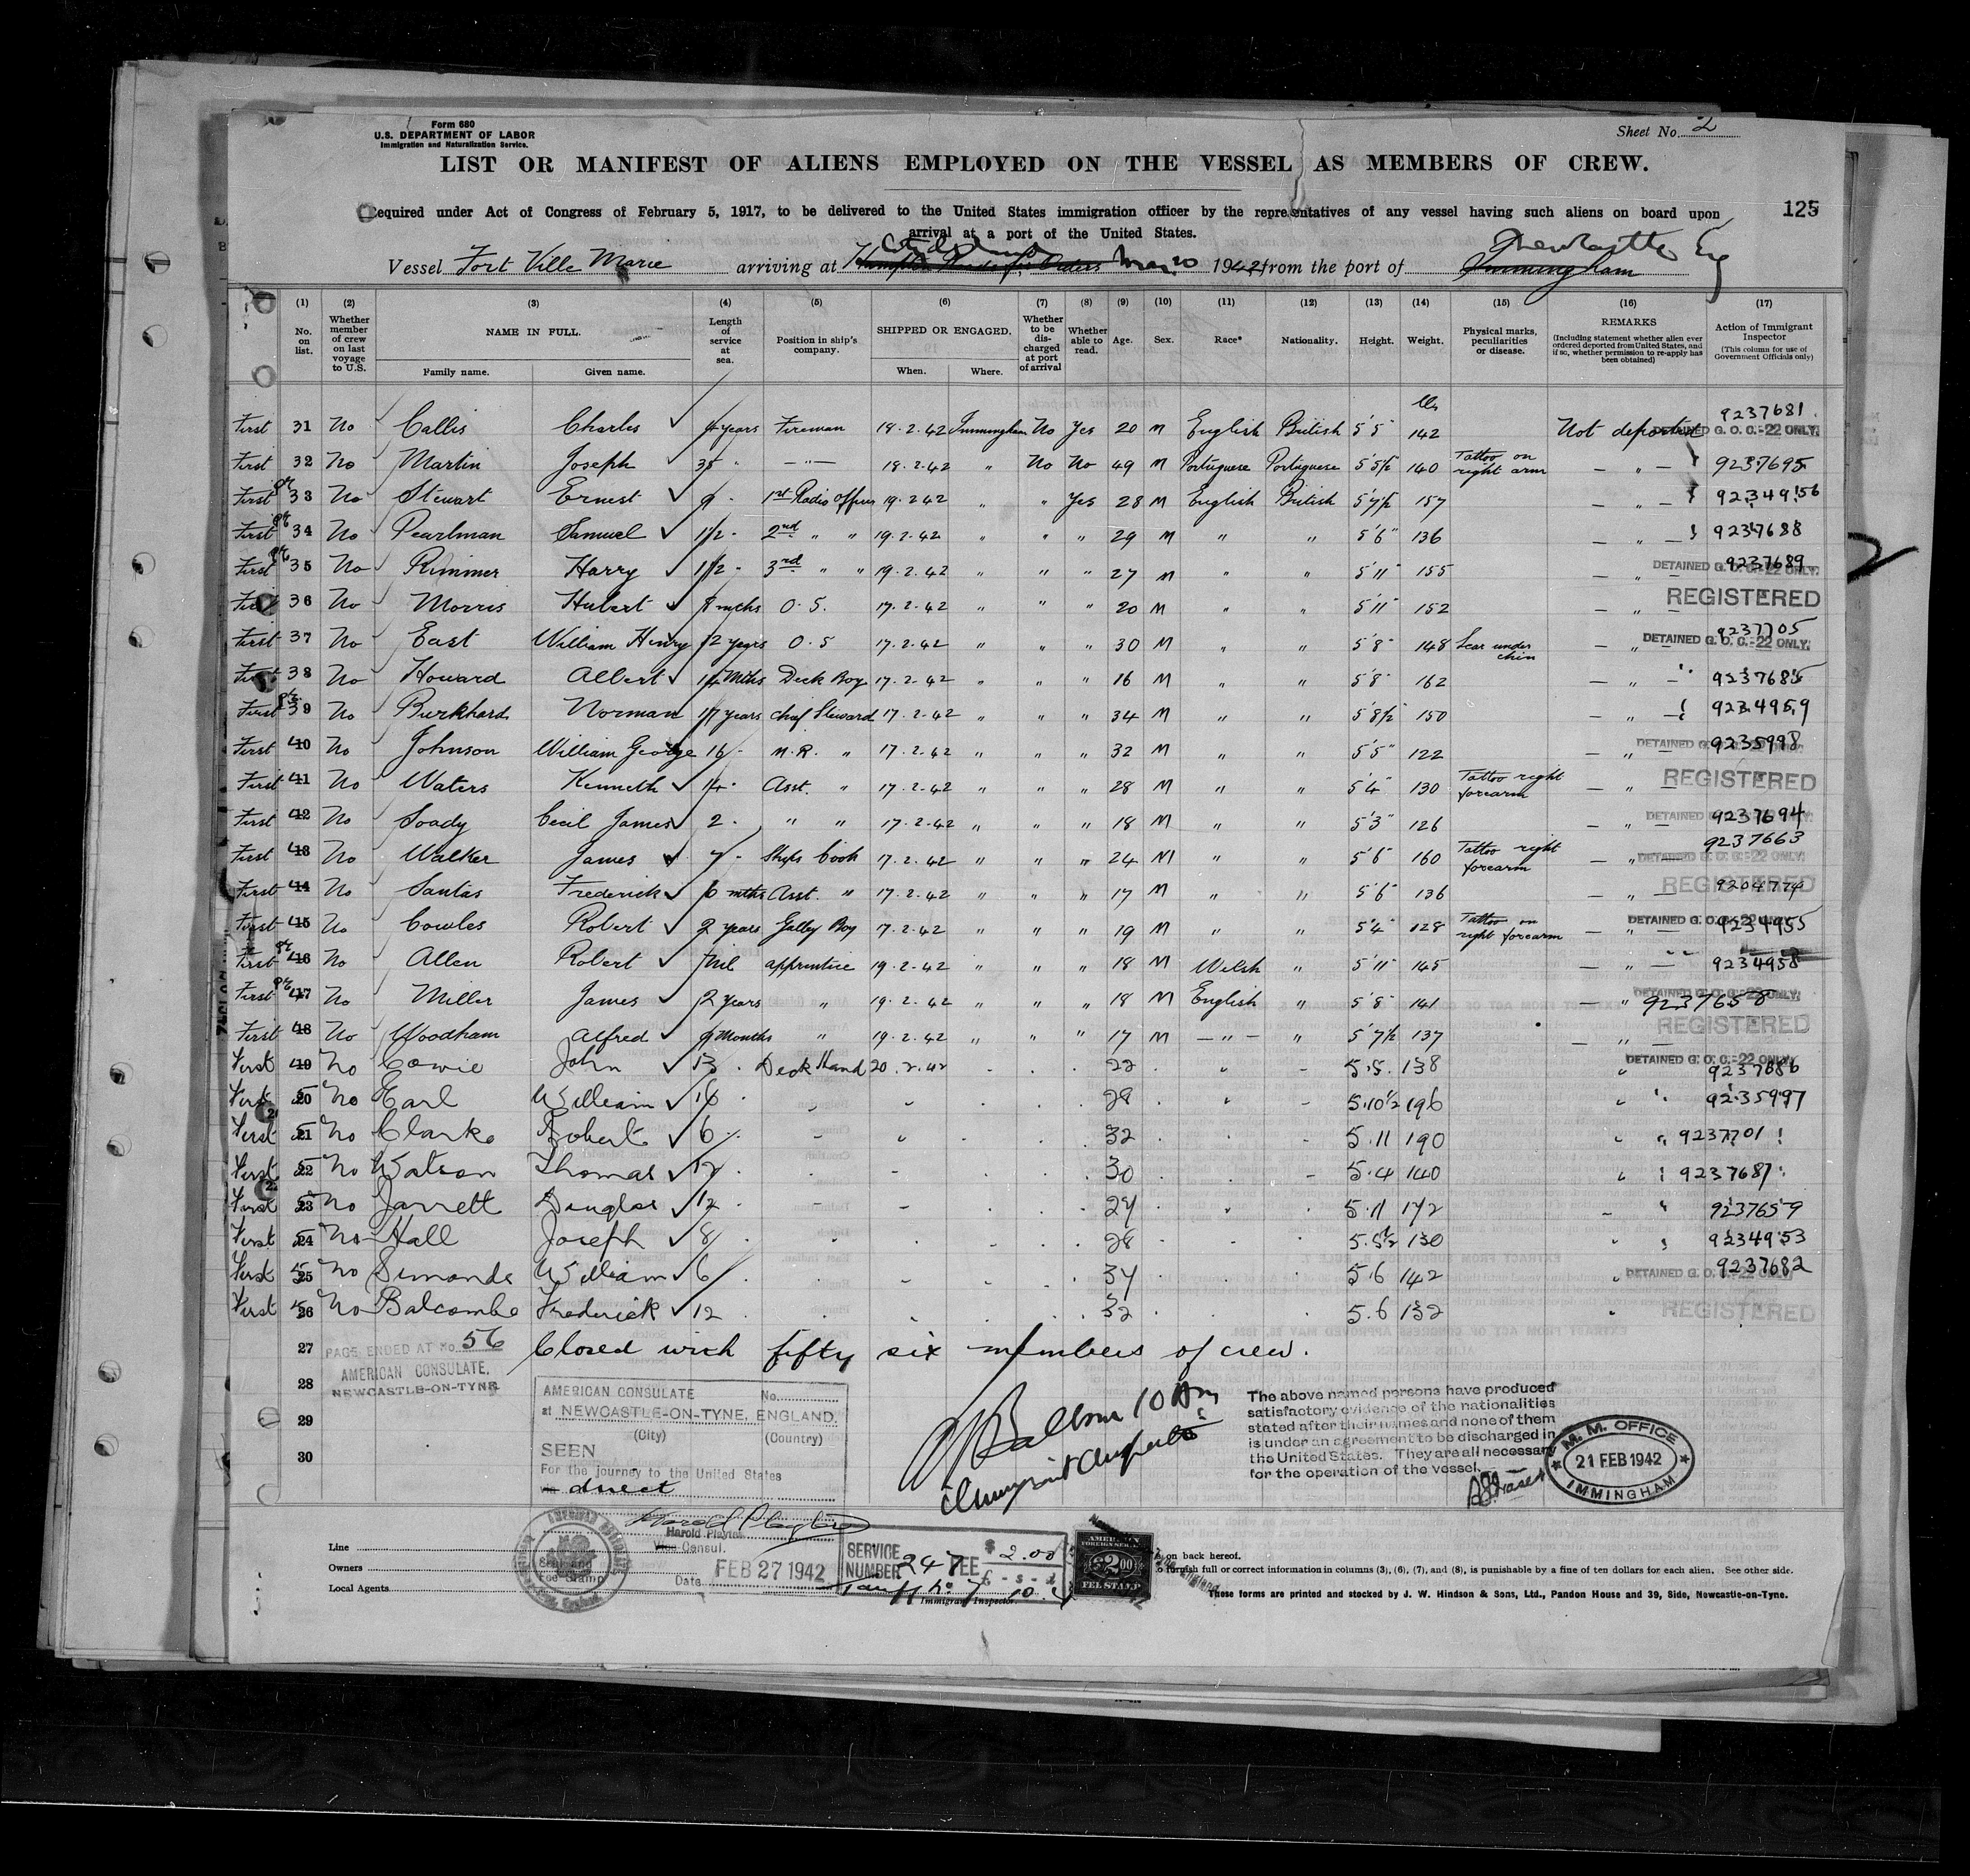 Form 680
U.S. DEPARTMENT OF LABOR
Immigration and Naturalization Service.
Sheet No. 2
LIST OR MANIFEST OF ALIENS EMPLOYED ON THE VESSEL AS MEMBERS OF CREW.
Required under Act of Congress of February 5, 1917, to be delivered to the United States immigration officer by the representatives of any vessel having such aliens on board upon 125
arrival at a port of the United States.
Vessel Fort Ville Marie arriving at Hampton Roads for Orders Mar 20 1942 from the port of Immingham Newcastle Eng
(1) (2) (3) (4) (5) (6) (7) (8) (9) (10) (11) (12) (13) (14) (15) (16) (17)
No. on list. Whether member of crew on last voyage to U.S. NAME IN FULL. Family name. Given name. Length of service at sea. Position in ship's company. SHIPPED OR ENGAGED. When. Where. Whether to be discharged at port of arrival Whether able to read. Age. Sex. Race* Nationality. Height. Weight. Physical marks, peculiarities or disease. REMARKS (Including statement whether alien ever ordered deported from United States, and if so, whether permission to re-apply has been obtained) Action of Immigrant Inspector (This column for use of Government Officials only)
lbs
First 31 No Callis Charles 4 years Fireman 18.2.42 Immingham No Yes 20 M English British 5'5" 142 Not deported 9237681 DETAINED G. O. C.-22 ONLY.
First 32 No Martin Joseph 35 " — " — 18.2.42 " No No 49 M Portuguese Portuguese 5'5½ 140 Tattoo on right arm — " — 9237695
First 33 No Stewart Ernest 9 " 1st Radio Officer 19.2.42 " " Yes 28 M English British 5'7½ 157 — " — 9234956
First 34 No Pearlman Samuel 1½ " 2nd " " 19.2.42 " " " 29 M " " 5'6" 136 — " — 9237688
First 35 No Rimmer Harry 1½ " 3rd " " 19.2.42 " " " 27 M " " 5'11" 155 — " — 9237689 DETAINED G. O. C.-22 ONLY.
First 36 No Morris Hubert 8 mths O.S. 17.2.42 " " " 20 M " " 5'11" 152 — " — REGISTERED
First 37 No East William Henry 12 years O.S 17.2.42 " " " 30 M " " 5'8" 148 Scar under chin — " — 9237705 DETAINED G. O. C.-22 ONLY.
First 38 No Howard Albert 14 Mths Deck Boy 17.2.42 " " " 16 M " " 5'8" 162 — " — 9237685
First 39 No Burkhard Norman 17 years Chief Steward 17.2.42 " " " 34 M " " 5'8½ 150 — " — 9234959
First 40 No Johnson William George 16 " M.R. " 17.2.42 " " " 32 M " " 5'5" 122 — " — 9235998 DETAINED G. O. C.-22 ONLY.
First 41 No Waters Kenneth 14 " Asst. " 17.2.42 " " " 28 M " " 5'4" 130 Tattoo right forearm — " — REGISTERED
First 42 No Soady Cecil James 2 " " " 17.2.42 " " " 18 M " " 5'3" 126 — " — 9237694 DETAINED G. O. C.-22 ONLY.
First 43 No Walker James 7 " Ships Cook 17.2.42 " " " 24 M " " 5'6" 160 Tattoo right forearm — " — 9237663 DETAINED G. O. C.-22 ONLY.
First 44 No Santas Frederick 6 mths Asst. " 17.2.42 " " " 17 M " " 5'6" 136 — " — 9204774 REGISTERED
First 45 No Cowles Robert 2 years Galley Boy 17.2.42 " " " 19 M " " 5'4" 128 Tattoo on right forearm — " — 9234955 DETAINED G. O. C.-22 ONLY.
First 46 No Allen Robert Nil apprentice 19.2.42 " " " 18 M Welsh " 5'11" 145 — " — 9234958
First 47 No Miller James 2 years " 19.2.42 " " " 18 M English " 5'8" 141 — " 9237658 DETAINED G. O. C.-22 ONLY.
First 48 No Woodham Alfred 9 Months " 19.2.42 " " " 17 M — " — " 5'7½ 137 — " — REGISTERED
First 49 No Cowie John 13 Deck Hand 20.2.42 22 5.5. 138 9237686 DETAINED G. O. C.-22 ONLY.
First 50 No Earl William 16 28 5.10½ 196 9235997
First 51 No Clarke Robert 6 32 5.11 190 9237701
First 52 No Watson Thomas 12 30 5.4 140 9237687
First 53 No Jarrett Douglas 12 24 5.11 172 9237659
First 54 No Hall Joseph 8 28 5.5½ 130 9234953
First 55 No Simonds William 6 34 5.6 142 9237682 DETAINED G. O. C.-22 ONLY.
First 56 No Balcombe Frederick 12 32 5.6 132 REGISTERED
27 PAGE ENDED AT No. 56 Closed with fifty six members of crew.
28 AMERICAN CONSULATE,
NEWCASTLE-ON-TYNE
29
30
AMERICAN CONSULATE No.
at NEWCASTLE-ON-TYNE, ENGLAND.
(City) (Country)
SEEN
For the journey to the United States
direct
Harold Playter
Vice Consul.
Date FEB 27 1942
Immigrant Inspector
The above named persons have produced
satisfactory evidence of the nationalities
stated after their names and none of them
is under an agreement to be discharged in
the United States. They are all necessary
for the operation of the vessel.
M. M. OFFICE
21 FEB 1942
IMMINGHAM
Line
Owners
Local Agents
SERVICE NUMBER 247 FEE $ 2.00
£ - s - d
Tariff No 7 10.
Immigrant Inspector.
AMERICAN
FOREIGN SERVICE
$2.00
FEE STAMP
on back hereof.
o furnish full or correct information in columns (3), (6), (7), and (8), is punishable by a fine of ten dollars for each alien. See other side.
These forms are printed and stocked by J. W. Hindson & Sons, Ltd., Pandon House and 39, Side, Newcastle-on-Tyne.